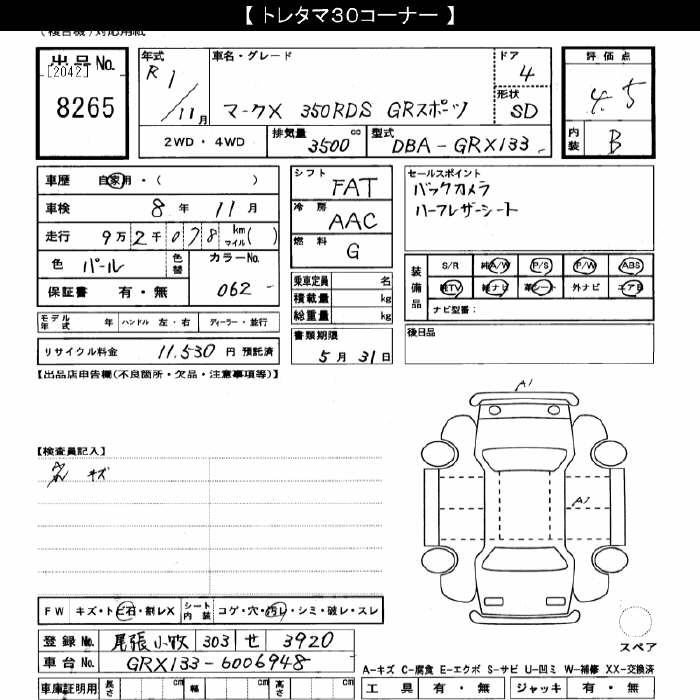 【 トレタマ30コーナー 】
(複合機)対応用紙
出品No.
[2042]
8265
年式
R 1/11月
車名・グレード
マークX 350RDS GRスポーツ
ドア
4
形状
SD
評価点
4.5
内装
B
2WD・4WD
排気量
3500 cc
型式
DBA-GRX133
車歴 自家用・( )
車検 8年 11月
走行 9万2千078 km マイル( )
色 パール
色替
カラーNo.
062
保証書 有・無
シフト
FAT
冷房
AAC
燃料
G
セールスポイント
バックカメラ
ハーフレザーシート
装備品
S/R 純A/W P/S P/W ABS
純TV 純ナビ 革シート 外ナビ エアB
ナビ型番:
乗車定員 名
積載量 kg
総重量 kg
モデル年式 年 ハンドル 左・右 ディーラー・並行
リサイクル料金 11,530 円 預託済
書類期限
5月31日
後日品
【出品店申告欄(不良箇所・欠品・注意事項等)】
A1
【検査員記入】
キズ
A1
FW キズ・トビ石・割レX
シート内装 コゲ・穴・汚レ・シミ・破レ・スレ
登録No. 尾張小牧 303 せ 3920
車台No. GRX133-6006948
スペア
A-キズ C-腐食 E-エクボ S-サビ U-凹ミ W-補修 XX-交換済
車庫証明用 長さ cm 幅 cm 高さ cm
工具 有・無 ジャッキ 有・無